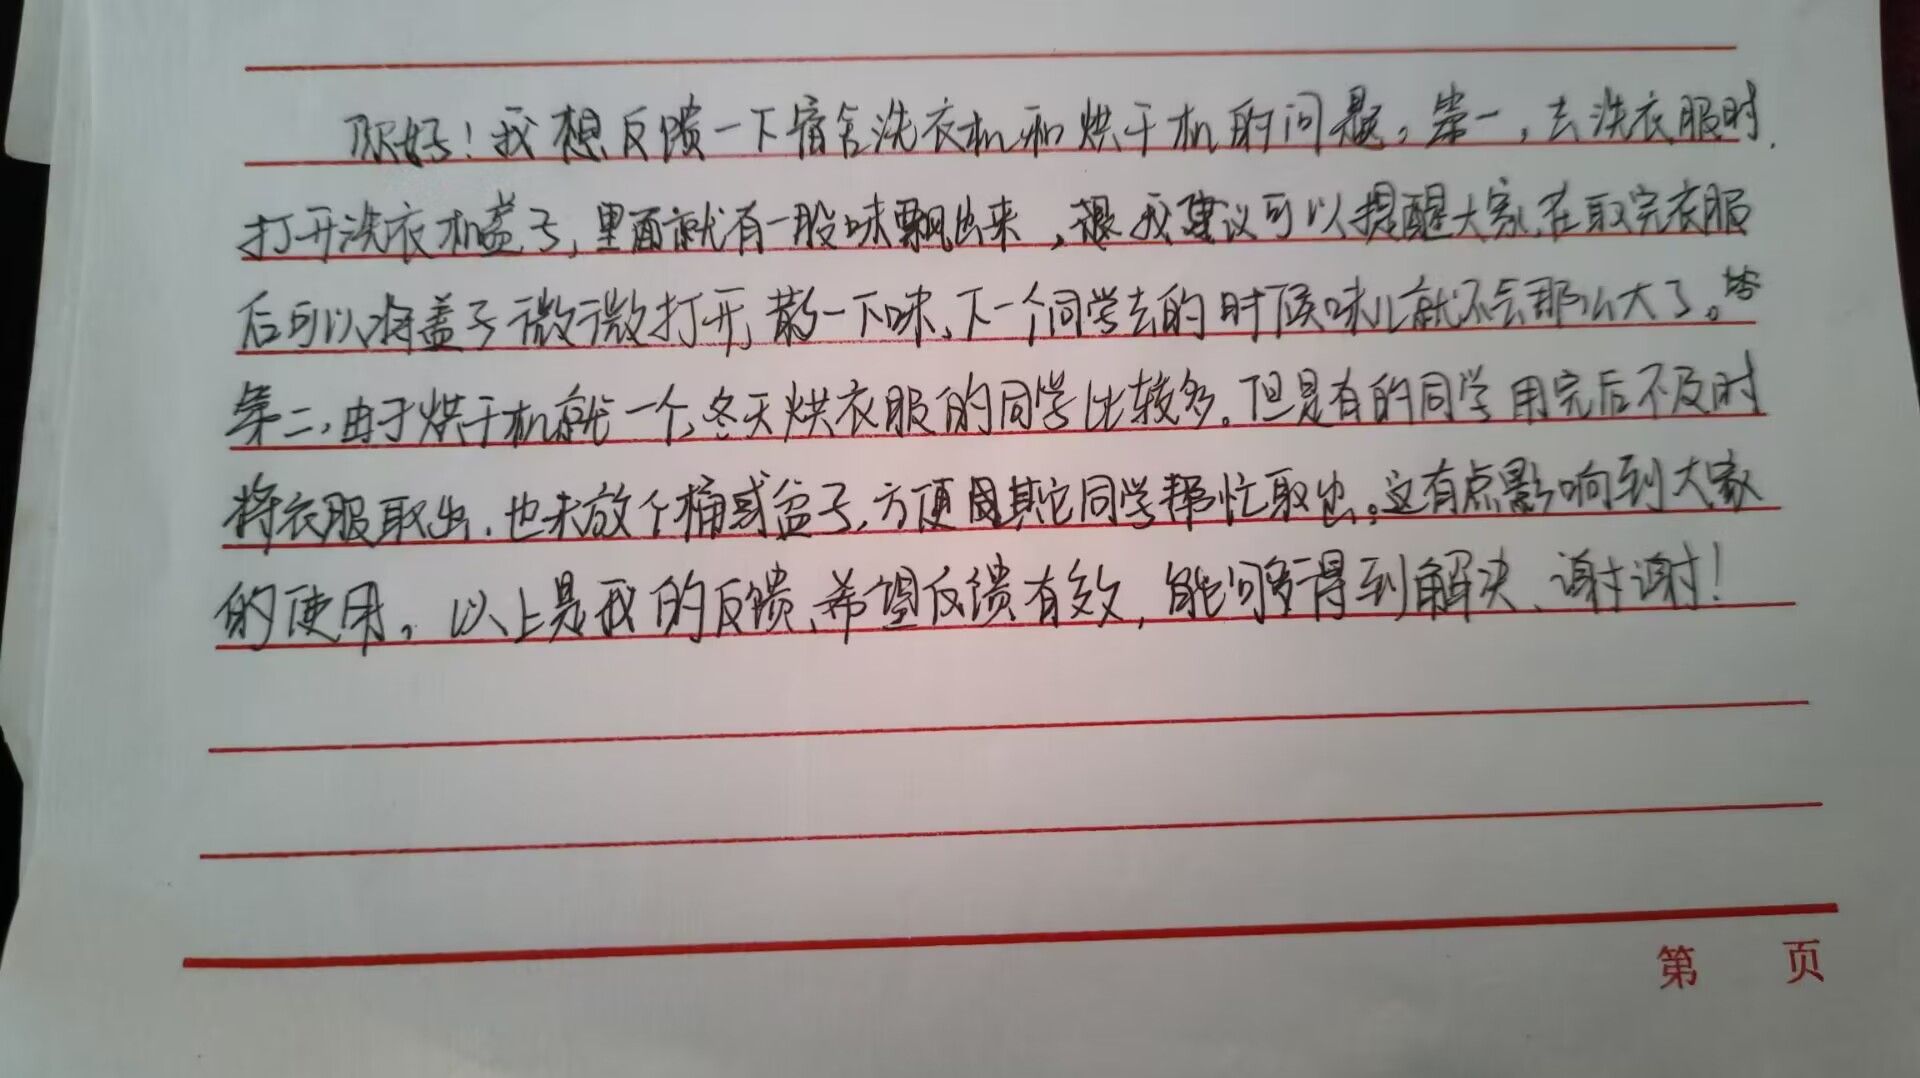 你好！我想反馈一下宿舍洗衣机和烘干机的问题。第一，去洗衣服时，
打开洗衣机盖子，里面就有一股味飘出来，我建议可以提醒大家在取完衣服
后可以将盖子微微打开，散一下味，下一个同学去的时候味儿就不会那么大了。
第二，由于烘干机就一个，冬天烘衣服的同学比较多。但是有的同学用完后不及时
将衣服取出，也未放个桶或盆子，方便其它同学帮忙取出。这有点影响到大家
的使用。以上是我的反馈，希望反馈有效，能够得到解决、谢谢！
第 页